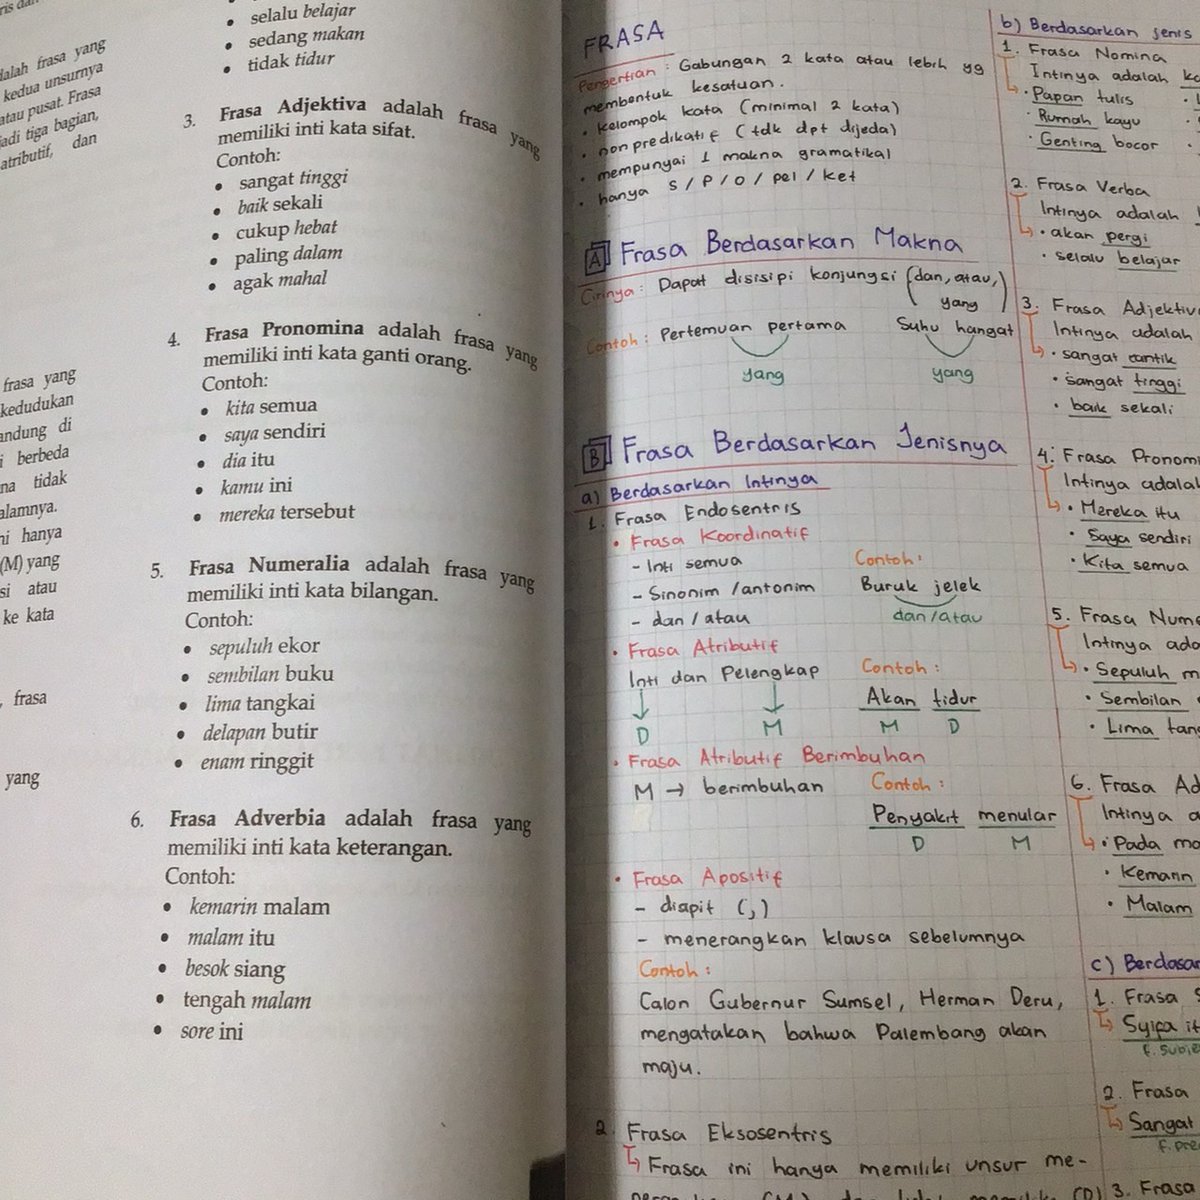 dalah frasa yang
kedua unsurnya
atau pusat. Frasa
jadi tiga bagian,
atributif, dan
frasa yang
kedudukan
andung di
berbeda
na tidak
alamnya.
ni hanya
(M) yang
si atau
ke kata
, frasa
yang
• selalu belajar
• sedang makan
• tidak tidur
3. Frasa Adjektiva adalah frasa yang
memiliki inti kata sifat.
Contoh:
• sangat tinggi
• baik sekali
• cukup hebat
• paling dalam
• agak mahal
4. Frasa Pronomina adalah frasa yang
memiliki inti kata ganti orang.
Contoh:
• kita semua
• saya sendiri
• dia itu
• kamu ini
• mereka tersebut
5. Frasa Numeralia adalah frasa yang
memiliki inti kata bilangan.
Contoh:
• sepuluh ekor
• sembilan buku
• lima tangkai
• delapan butir
• enam ringgit
6. Frasa Adverbia adalah frasa yang
memiliki inti kata keterangan.
Contoh:
• kemarin malam
• malam itu
• besok siang
• tengah malam
• sore ini
FRASA
Pengertian : Gabungan 2 kata atau lebih yg
membentuk kesatuan.
• kelompok kata (minimal 2 kata)
• non predikatif (tdk dpt dijeda)
• mempunyai 1 makna gramatikal
• hanya S / P / O / pel / ket
A Frasa Berdasarkan Makna
Cirinya : Dapat disisipi konjungsi (dan, atau,
yang)
Contoh : Pertemuan pertama Suhu hangat
yang yang
B Frasa Berdasarkan Jenisnya
a) Berdasarkan Intinya
1. Frasa Endosentris
• Frasa Koordinatif
- Inti semua Contoh :
- Sinonim /antonim Buruk jelek
- dan / atau dan/atau
• Frasa Atributif
Inti dan Pelengkap Contoh :
Akan tidur
D M M D
• Frasa Atributif Berimbuhan
M → berimbuhan Contoh :
Penyakit menular
D M
• Frasa Apositif
- diapit (,)
- menerangkan klausa sebelumnya
Contoh :
Calon Gubernur Sumsel, Herman Deru,
mengatakan bahwa Palembang akan
maju.
2. Frasa Eksosentris
↳ Frasa ini hanya memiliki unsur me-
b) Berdasarkan jenis
1. Frasa Nomina
Intinya adalah
↳ • Papan tulis
• Rumah kayu
• Genting bocor
2. Frasa Verba
Intinya adalah
↳ • akan pergi
• selalu belajar
3. Frasa Adjektiv
Intinya adalah
↳ • sangat cantik
• sangat tinggi
• baik sekali
4. Frasa Pronomi
Intinya adalah
↳ • Mereka itu
• Saya sendiri
• Kita semua
5. Frasa Nume
Intinya ada
↳ • Sepuluh m
• Sembilan
• Lima tang
6. Frasa Ad
Intinya a
↳ • Pada ma
• Kemarin
• Malam
c) Berdasar
1. Frasa S
↳ Syifa it
f. Subje
2. Frasa
↳ Sangat
f. pre
3. Frasa